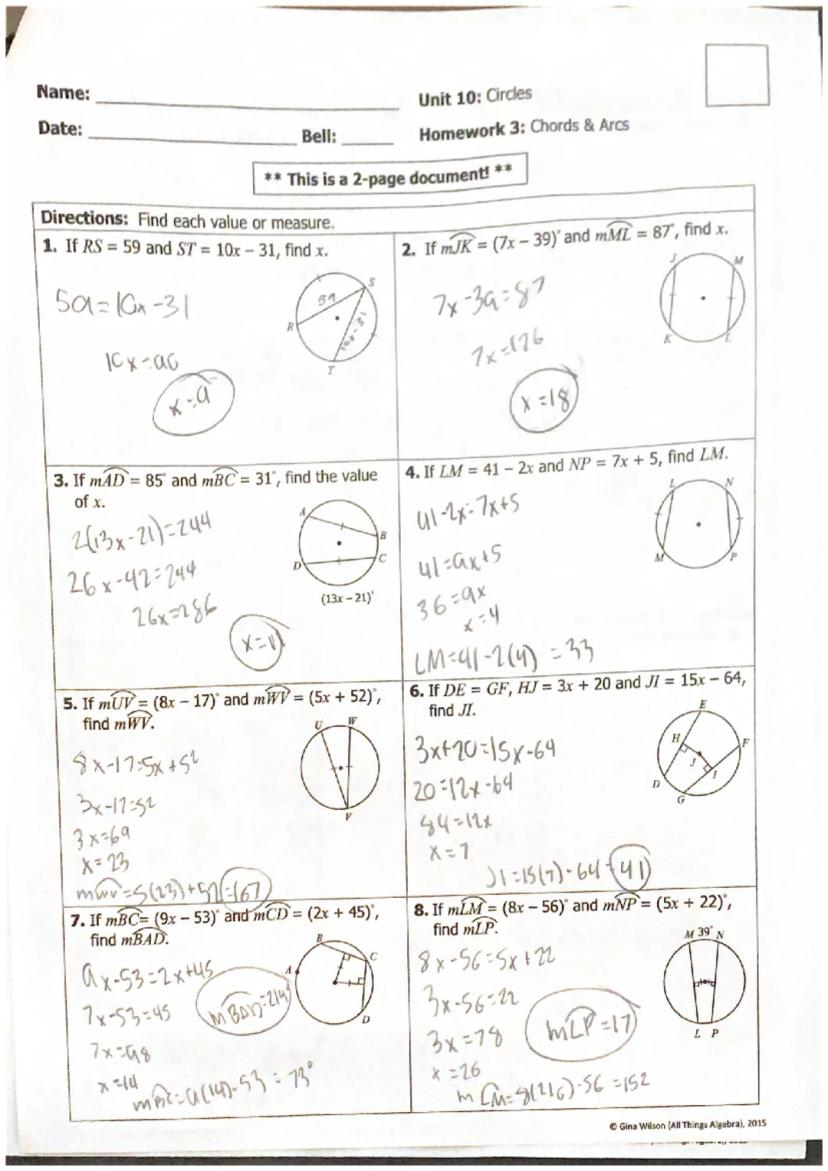 Name: ____________ Unit 10: Circles
Date: ____________ Bell: ______ Homework 3: Chords & Arcs
** This is a 2-page document! **
Directions: Find each value or measure.
1. If RS = 59 and ST = 10x – 31, find x.
59=10x-31
10x=90
x=9
S
59
10x-31
R
T
2. If mJK = (7x – 39)° and mML = 87°, find x.
7x-39=87
7x=126
x=18
J
M
K
L
3. If mAD = 85° and mBC = 31°, find the value
of x.
2(13x-21)=244
26x-42=244
26x=286
x=11
A
B
D
C
(13x – 21)°
4. If LM = 41 – 2x and NP = 7x + 5, find LM.
41-2x=7x+5
41=9x+5
36=9x
x=4
LM=41-2(4) = 33
L
N
M
P
5. If mUV = (8x – 17)° and mWV = (5x + 52)°,
find mWV.
8x-17=5x+52
3x-17=52
3x=69
x=23
mWV=5(23)+52=167
U
W
V
6. If DE = GF, HJ = 3x + 20 and JI = 15x – 64,
find JI.
3x+20=15x-64
20=12x-64
84=12x
x=7
JI=15(7)-64=41
E
H
F
J
I
D
G
7. If mBC= (9x – 53)° and mCD = (2x + 45)°,
find mBAD.
9x-53=2x+45
7x-53=45
7x=98
x=14
mBC=9(14)-53=73°
mBAD=214°
B
C
A
D
8. If mLM = (8x – 56)° and mNP = (5x + 22)°,
find mLP.
8x-56=5x+22
3x-56=22
3x=78
x=26
m LM=8(26)-56=152
mLP=17
M 39° N
L P
© Gina Wilson (All Things Algebra), 2015